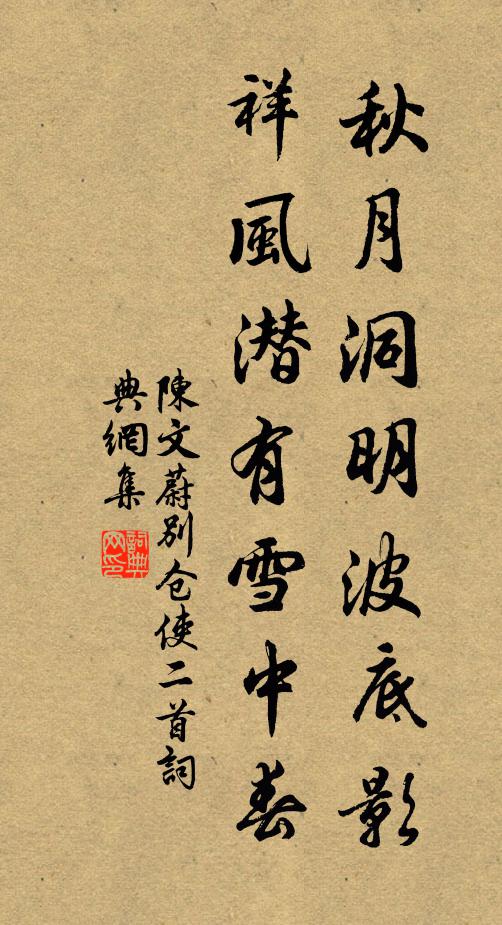 秋月洞明波底影
祥風潜有雪中春
陳文蔚別仓使二首詞
典網集
詞典网印